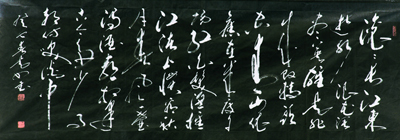 滚滚长江东
逝水浪花淘
尽英雄是非
成败转头
空青山依
旧在几度夕
阳红白发渔樵
江渚上惯看秋
月春风一壶
浊酒喜相逢
古今多少事
都付笑谈中